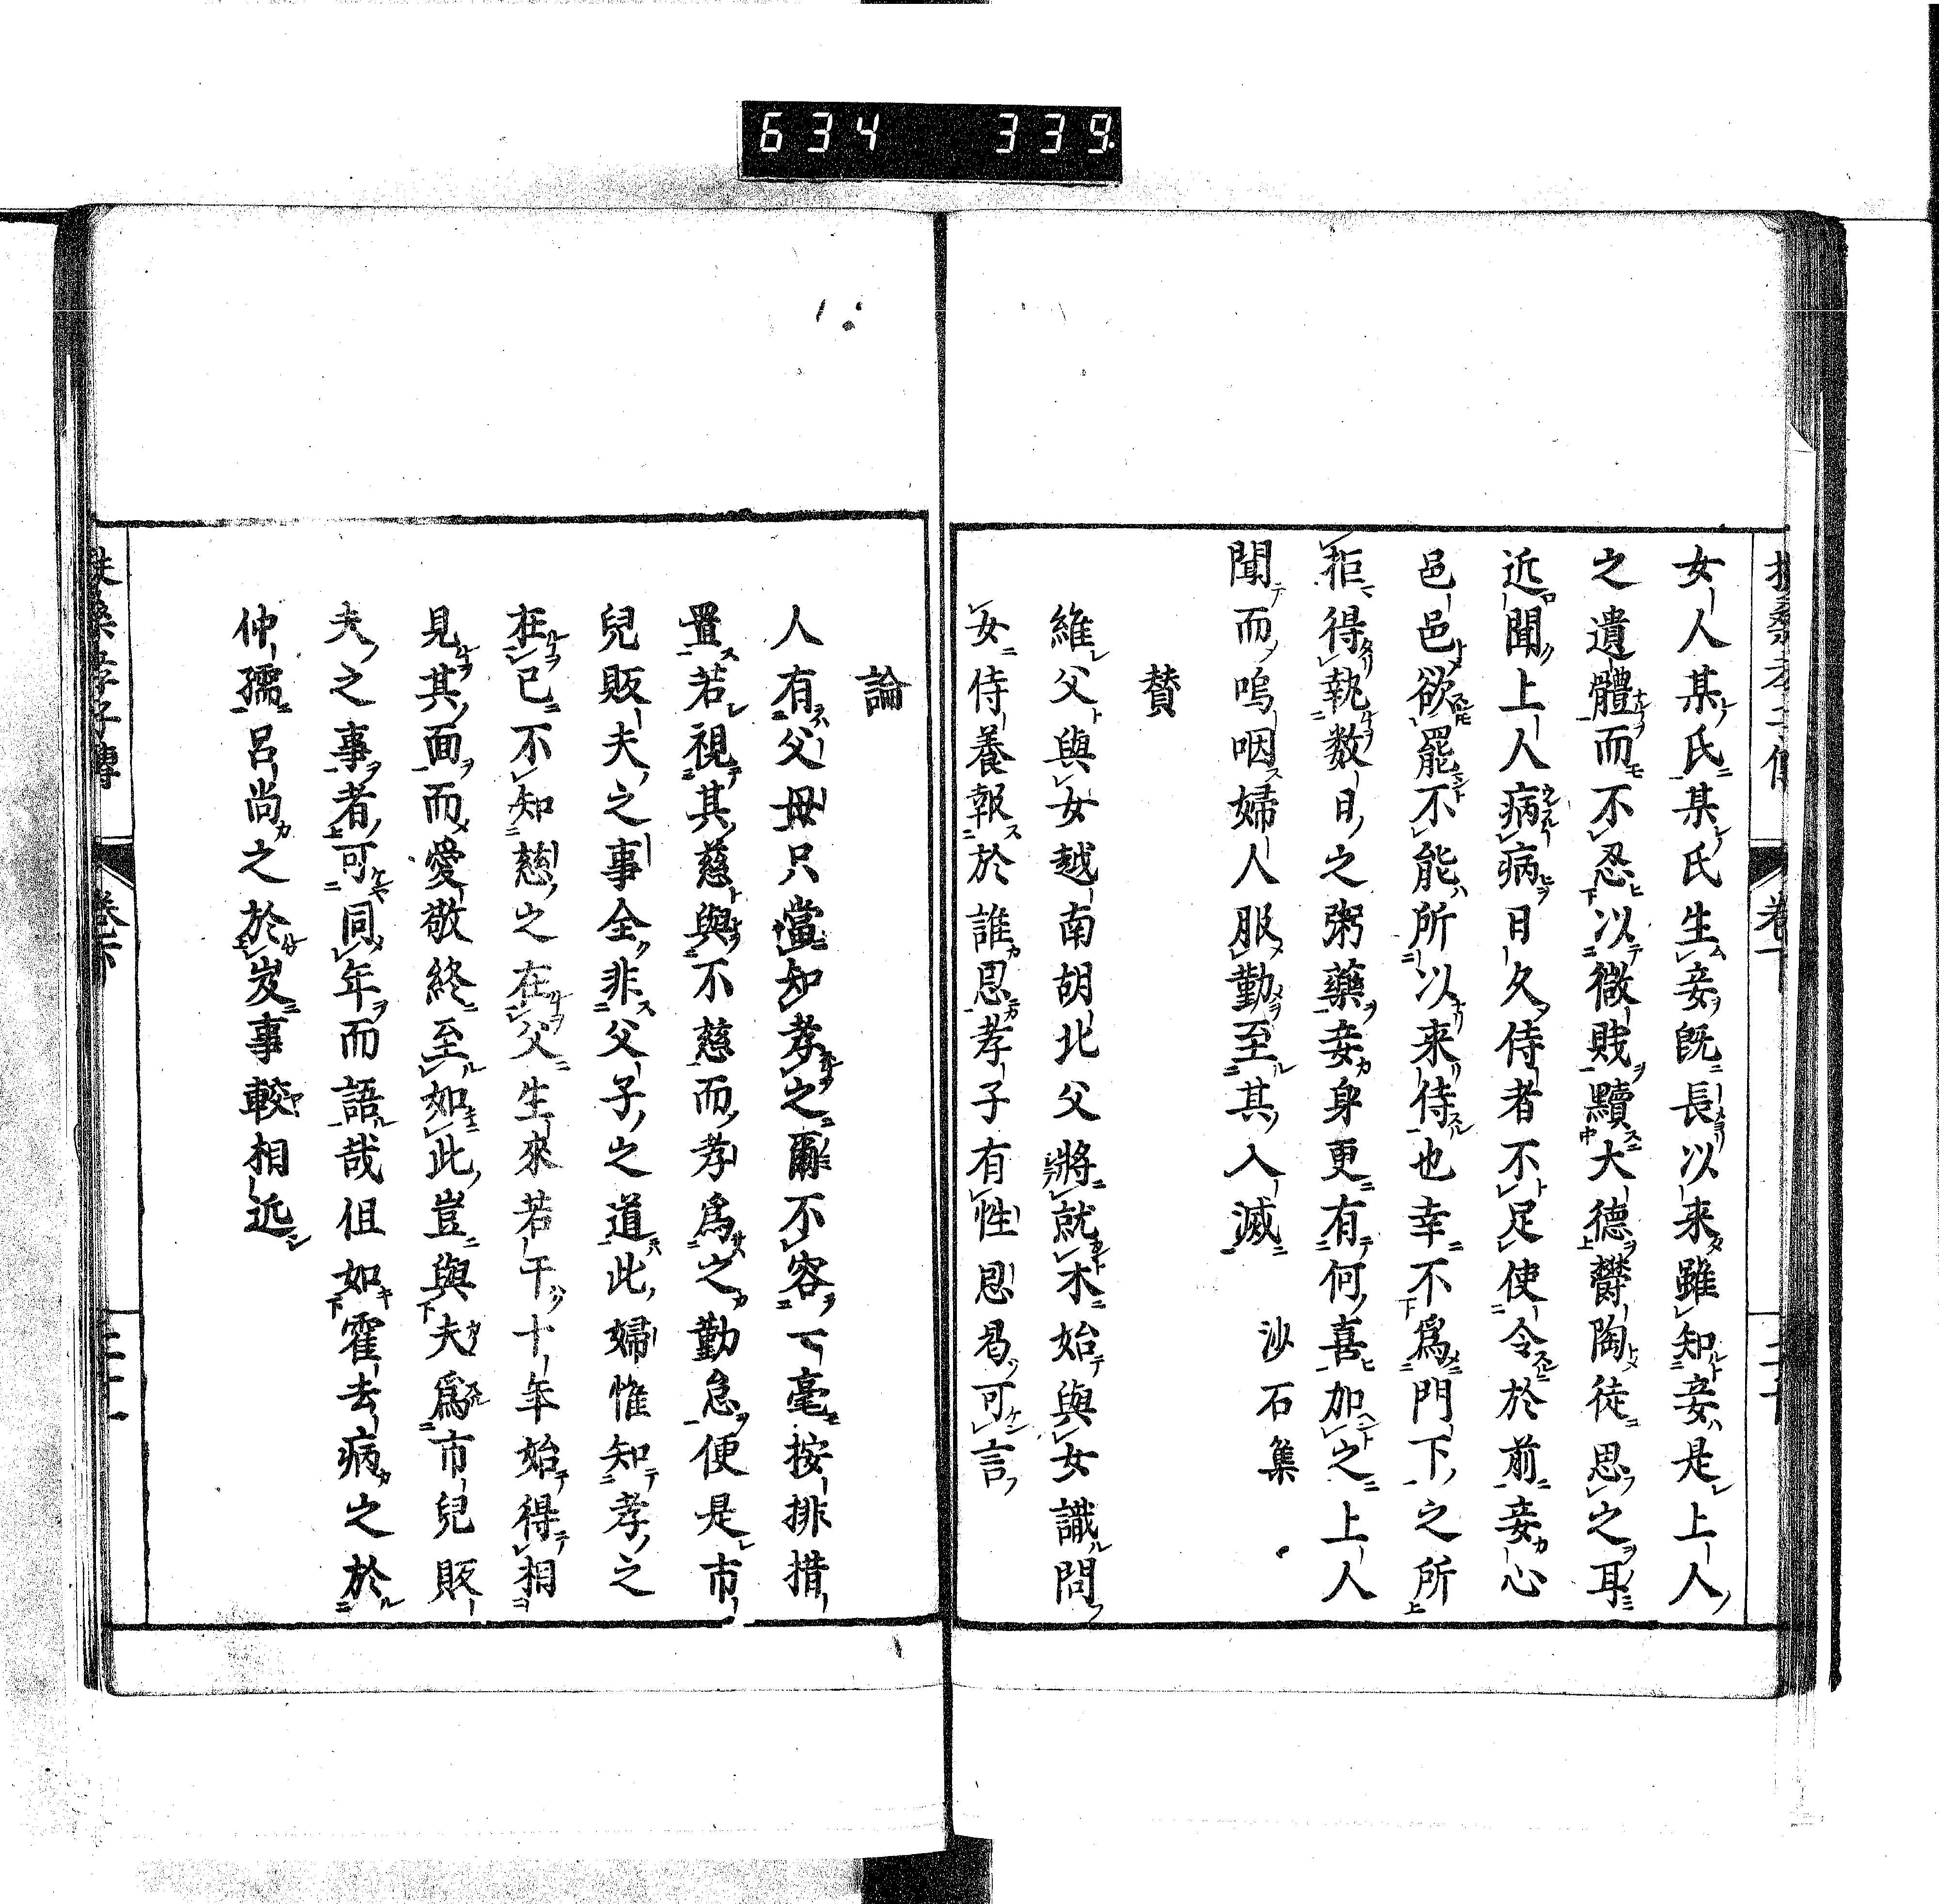 634 339
女人某氏某氏生妾既長以来雖知妾是上人
之遺體而不忍以微賎黷大德欝陶徒思之耳
近聞上人病病日久侍者不足使令於前妾心
邑邑欲罷不能所以来侍也幸不爲門下之所
拒得執数日之粥藥妾身更有何喜加之上人
聞而嗚咽婦人服勤至其入滅 沙石集
賛
維父與女越南胡北父將就木始與女識問
女侍養報於誰恩孝子有性恩曷可言
論
人有父母只當知孝之爾不容一毫按排措
置若視其慈與不慈而孝爲之勤怠便是市
兒販夫之事全非父子之道此婦惟知孝之
在已不知慈之在父生來若干十年始得相
見其面而愛敬終至如此豈與夫爲市兒販
夫之事者可同年而語哉但如霍去病之於
仲孺呂尚之於岌事較相近
扶桑孝子傳 卷下